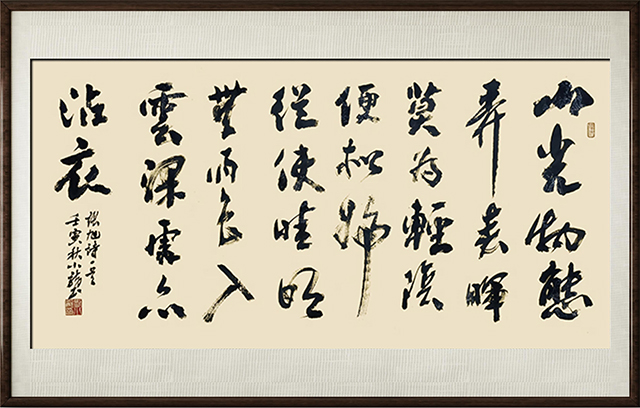 山光物態
弄春暉
莫為輕陰
便擬歸
縱使晴明
無雨色入
雲深處亦
沾衣
張旭詩一首
壬寅秋小